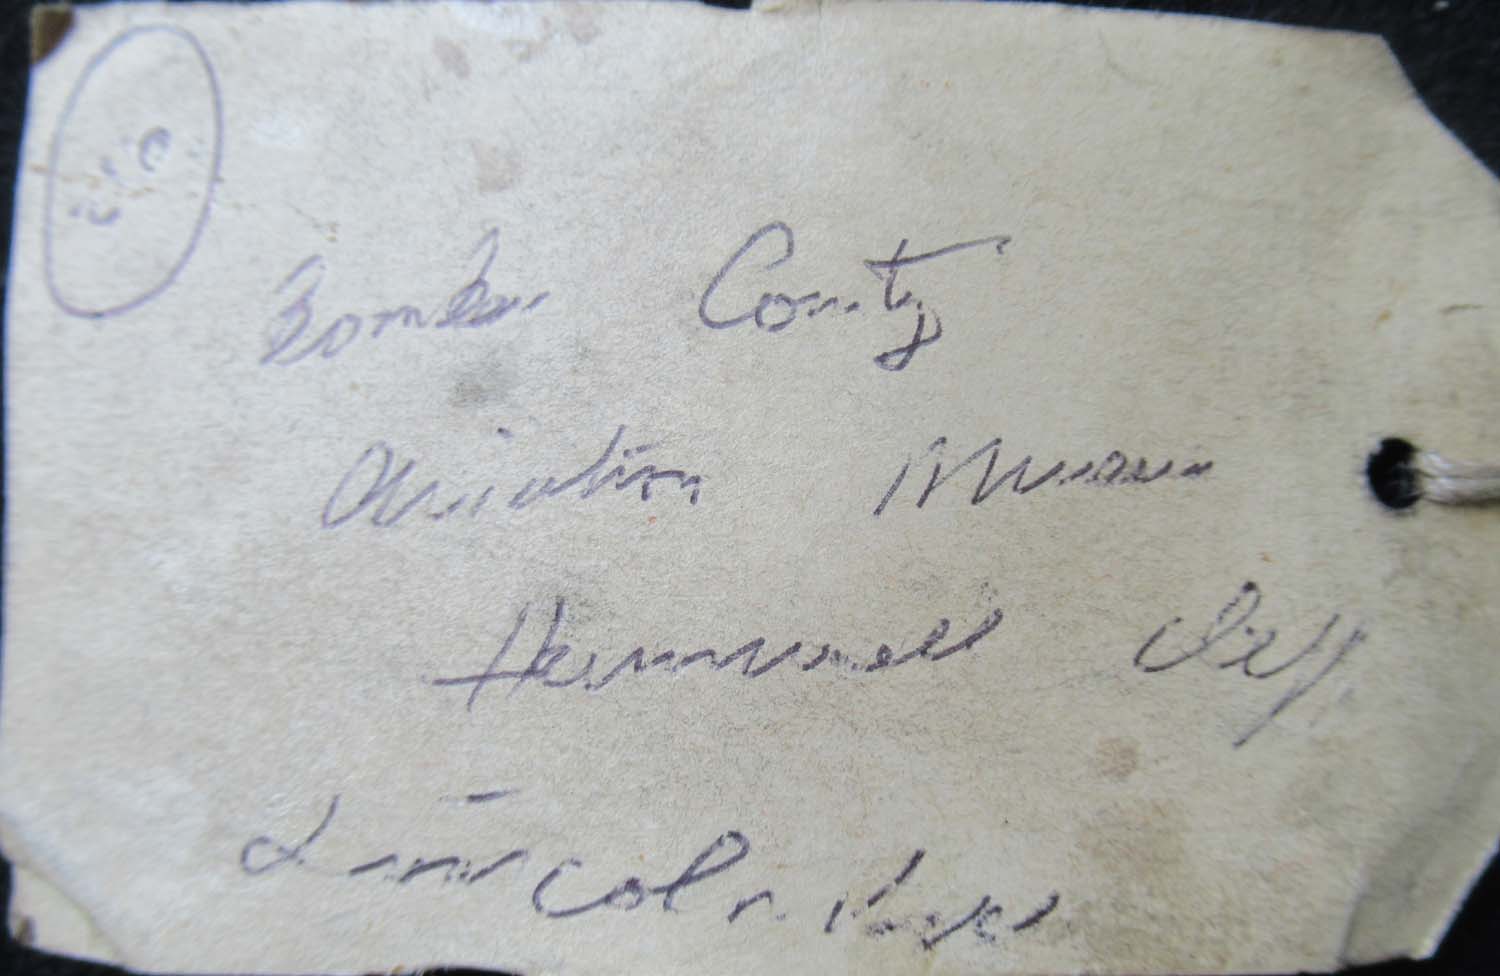 Bomber County
Aviation Museum
Hemswell
Lincolnshire